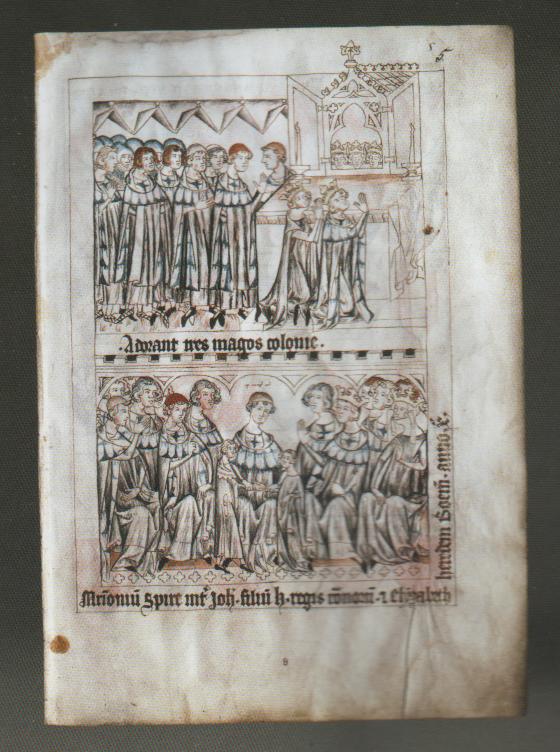 Adorant tres magos colonie.
Mr̄oniū Spire int̄ Joh. filiū h. regis rōmanoꝝ. ⁊ Elizabeth
heredem Boem̄. anno. x̊.
8